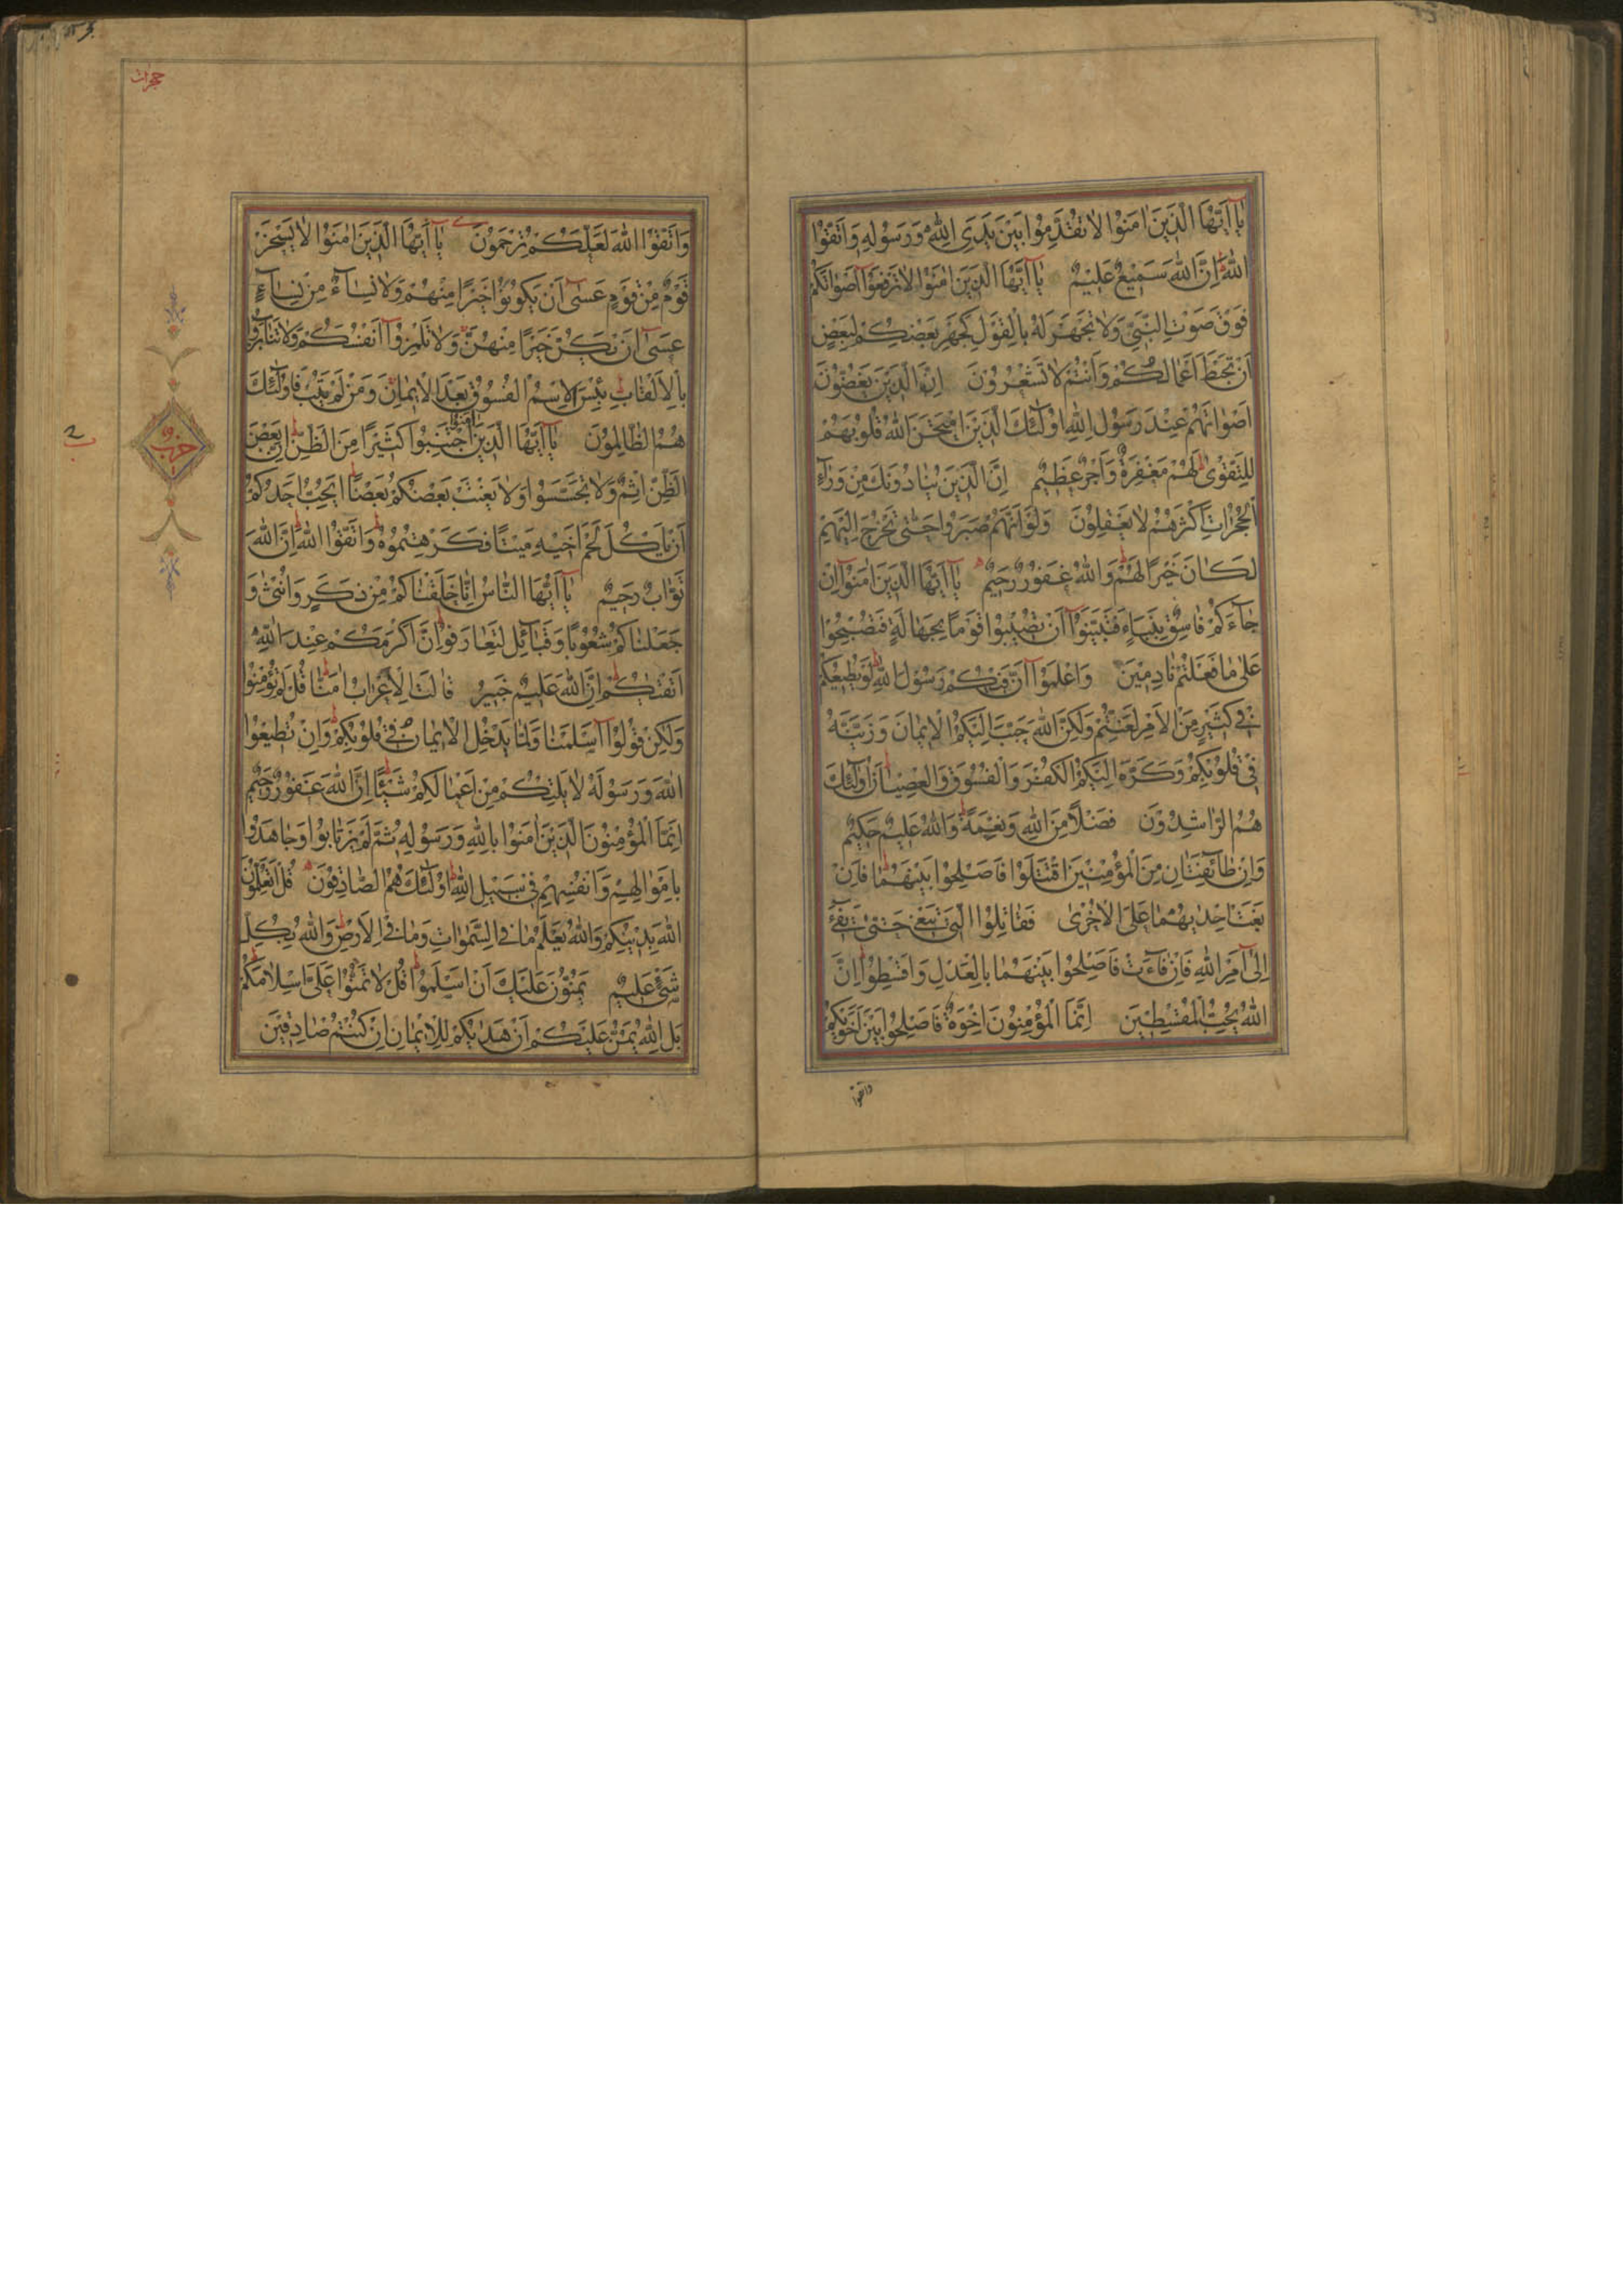 يٰا اَيُّهَا الَّذِينَ اٰمَنُوْا لاٰ تُقَدِّمُوْا بَيْنَ يَدَىِ اللّٰهِ وَرَسُوْلِهِ وَاتَّقُوْا
اللّٰهَ اِنَّ اللّٰهَ سَمِيْعٌ عَلِيْمٌ يٰا اَيُّهَا الَّذِينَ اٰمَنُوْا لاٰ تَرْفَعُوْا اَصْوٰاتَكُمْ
فَوْقَ صَوْتِ النَّبِيِّ وَلاٰ تَجْهَرُوْا لَهُ بِالْقَوْلِ كَجَهْرِ بَعْضِكُمْ لِبَعْضٍ
اَنْ تَحْبَطَ اَعْمٰالُكُمْ وَاَنْتُمْ لاٰ تَشْعُرُوْنَ اِنَّ الَّذِينَ يَغُضُّوْنَ
اَصْوٰاتَهُمْ عِنْدَ رَسُوْلِ اللّٰهِ اُولٰئِكَ الَّذِينَ امْتَحَنَ اللّٰهُ قُلُوْبَهُمْ
لِلتَّقْوٰى لَهُمْ مَغْفِرَةٌ وَاَجْرٌ عَظِيْمٌ اِنَّ الَّذِينَ يُنٰادُوْنَكَ مِنْ وَرٰاءِ
الْحُجُرٰاتِ اَكْثَرُهُمْ لاٰ يَعْقِلُوْنَ وَلَوْ اَنَّهُمْ صَبَرُوا حَتّٰى تَخْرُجَ اِلَيْهِمْ
لَكٰانَ خَيْرًا لَهُمْ وَاللّٰهُ غَفُوْرٌ رَحِيْمٌ يٰا اَيُّهَا الَّذِينَ اٰمَنُوْا اِنْ
جٰاءَكُمْ فٰاسِقٌ بِنَبَاءٍ فَتَبَيَّنُوْا اَنْ تُصِيْبُوْا قَوْمًا بِجَهٰالَةٍ فَتُصْبِحُوْا
عَلٰى مٰا فَعَلْتُمْ نٰادِمِيْنَ وَاعْلَمُوْا اَنَّ فِيْكُمْ رَسُوْلَ اللّٰهِ لَوْ يُطِيْعُكُمْ
فِىْ كَثِيْرٍ مِنَ الْاَمْرِ لَعَنِتُّمْ وَلٰكِنَّ اللّٰهَ حَبَّبَ اِلَيْكُمُ الْاِيْمٰانَ وَزَيَّنَهُ
فِىْ قُلُوْبِكُمْ وَكَرَّهَ اِلَيْكُمُ الْكُفْرَ وَالْفُسُوْقَ وَالْعِصْيٰانَ اُولٰئِكَ
هُمُ الرّٰاشِدُوْنَ فَضْلاً مِنَ اللّٰهِ وَنِعْمَةً وَاللّٰهُ عَلِيْمٌ حَكِيْمٌ
وَاِنْ طٰائِفَتٰانِ مِنَ الْمُؤْمِنِيْنَ اقْتَتَلُوْا فَاَصْلِحُوْا بَيْنَهُمٰا فَاِنْ
بَغَتْ اِحْدٰيهُمٰا عَلَى الْاُخْرٰى فَقٰاتِلُوْا الَّتِىْ تَبْغِىْ حَتّٰى تَفِىْءَ
اِلٰى اَمْرِ اللّٰهِ فَاِنْ فٰاءَتْ فَاَصْلِحُوْا بَيْنَهُمٰا بِالْعَدْلِ وَاَقْسِطُوْا اِنَّ
اللّٰهَ يُحِبُّ الْمُقْسِطِيْنَ اِنَّمَا الْمُؤْمِنُوْنَ اِخْوَةٌ فَاَصْلِحُوْا بَيْنَ اَخَوَيْكُمْ
واتقوا
حجرات
وَاتَّقُوْا اللّٰهَ لَعَلَّكُمْ تُرْحَمُوْنَ يٰا اَيُّهَا الَّذِينَ اٰمَنُوْا لاٰ يَسْخَرْ
قَوْمٌ مِنْ قَوْمٍ عَسٰى اَنْ يَكُوْنُوْا خَيْرًا مِنْهُمْ وَلاٰ نِسٰاءٌ مِنْ نِسٰاءٍ
عَسٰى اَنْ يَكُنَّ خَيْرًا مِنْهُنَّ وَلاٰ تَلْمِزُوْا اَنْفُسَكُمْ وَلاٰ تَنٰابَزُوْا
بِالْاَلْقٰابِ بِئْسَ الْاِسْمُ الْفُسُوْقُ بَعْدَ الْاِيْمٰانِ وَمَنْ لَمْ يَتُبْ فَاُولٰئِكَ
هُمُ الظّٰالِمُوْنَ يٰا اَيُّهَا الَّذِينَ اٰمَنُوا اجْتَنِبُوْا كَثِيْرًا مِنَ الظَّنِّ اِنَّ بَعْضَ
الظَّنِّ اِثْمٌ وَلاٰ تَجَسَّسُوْا وَلاٰ يَغْتَبْ بَعْضُكُمْ بَعْضًا اَيُحِبُّ اَحَدُكُمْ
اَنْ يَاْكُلَ لَحْمَ اَخِيْهِ مَيْتًا فَكَرِهْتُمُوْهُ وَاتَّقُوْا اللّٰهَ اِنَّ اللّٰهَ
تَوّٰابٌ رَحِيْمٌ يٰا اَيُّهَا النّٰاسُ اِنّٰا خَلَقْنٰاكُمْ مِنْ ذَكَرٍ وَاُنْثٰى وَ
جَعَلْنٰاكُمْ شُعُوْبًا وَقَبٰائِلَ لِتَعٰارَفُوْا اِنَّ اَكْرَمَكُمْ عِنْدَ اللّٰهِ
اَتْقٰيكُمْ اِنَّ اللّٰهَ عَلِيْمٌ خَبِيْرٌ قٰالَتِ الْاَعْرٰابُ اٰمَنّٰا قُلْ لَمْ تُؤْمِنُوْا
وَلٰكِنْ قُوْلُوْا اَسْلَمْنٰا وَلَمّٰا يَدْخُلِ الْاِيْمٰانُ فِىْ قُلُوْبِكُمْ وَاِنْ تُطِيْعُوْا
اللّٰهَ وَرَسُوْلَهُ لاٰ يَلِتْكُمْ مِنْ اَعْمٰالِكُمْ شَيْئًا اِنَّ اللّٰهَ غَفُوْرٌ رَحِيْمٌ
اِنَّمَا الْمُؤْمِنُوْنَ الَّذِيْنَ اٰمَنُوْا بِاللّٰهِ وَرَسُوْلِهِ ثُمَّ لَمْ يَرْتٰابُوْا وَجٰاهَدُوْا
بِاَمْوٰالِهِمْ وَاَنْفُسِهِمْ فِىْ سَبِيْلِ اللّٰهِ اُولٰئِكَ هُمُ الصّٰادِقُوْنَ قُلْ اَتُعَلِّمُوْنَ
اللّٰهَ بِدِيْنِكُمْ وَاللّٰهُ يَعْلَمُ مٰا فِى السَّمٰوٰاتِ وَمٰا فِى الْاَرْضِ وَاللّٰهُ بِكُلِّ
شَىْءٍ عَلِيْمٌ يَمُنُّوْنَ عَلَيْكَ اَنْ اَسْلَمُوْا قُلْ لاٰ تَمُنُّوْا عَلَىَّ اِسْلاٰمَكُمْ
بَلِ اللّٰهُ يَمُنُّ عَلَيْكُمْ اَنْ هَدٰيكُمْ لِلْاِيْمٰانِ اِنْ كُنْتُمْ صٰادِقِيْنَ
حزب